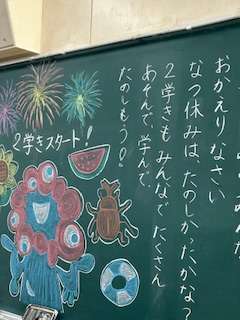 おかえりなさい
なつ休みは、たのしかったかな?
2学きも みんなで たくさん
あそんで、学んで、
たのしもう!
2学きスタート!